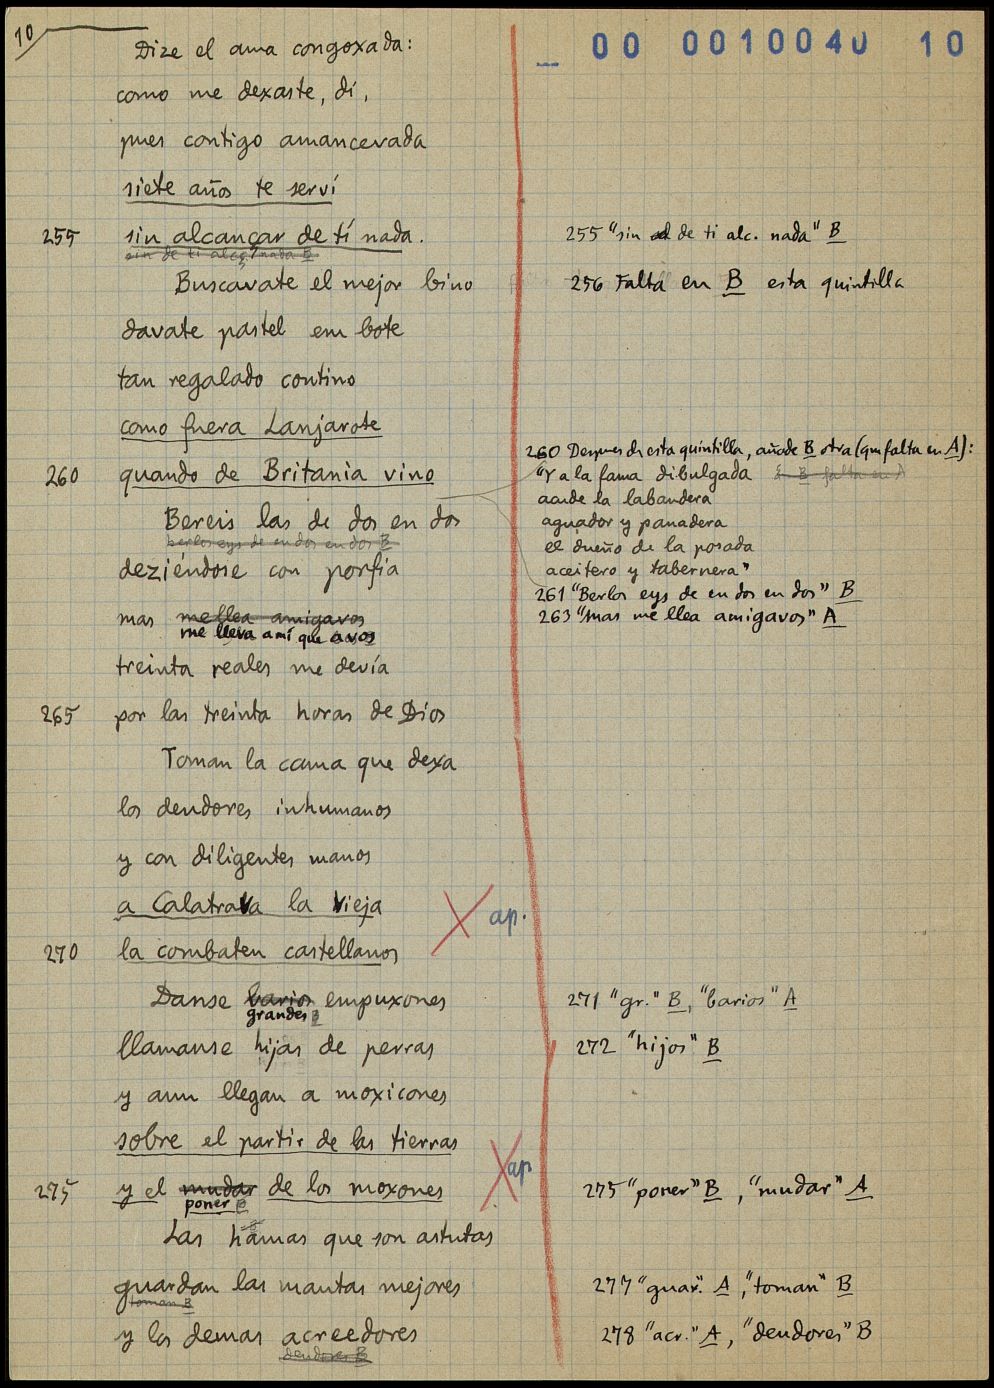 10
00 0010040 10
Dize el ama congoxada:
como me dexaste, di,
pues contigo amancevada
siete años te serví
255 sin alcançar de tí nada.
sin de ti alcç. nada B
Buscavate el mejor bino
davate pastel em bote
tan regalado contino
como fuera Lanjarote
260 quando de Britania vino
Bereis las de dos en dos
berlos eys de en dos en dos B
deziéndose con porfia
mas mellea amigavos
me lleva amí que a vos
treinta reales me devía
265 por las treinta horas de Dios
Toman la cama que dexa
los deudores inhumanos
y con diligentes manos
a Calatrava la Vieja
ap.
270 la combaten castellanos
Danse barios empuxones
grandes B
llamanse hijas de perras
y aun llegan a moxicones
sobre el partir de las tierras
ap
275 y el mudar de los moxones
poner B
Las hamas que son astutas
guardan las mantas mejores
toman B
y los demas acreedores
deudores B
255 "sin de ti alc. nada" B
256 Falta en B esta quintilla
260 Despues de esta quintilla, añade B otra (que falta en A):
"Y a la fama dibulgada
acude la labandera
aguador y panadera
el dueño de la posada
aceitero y tabernera"
261 "Berlos eys de en dos en dos" B
263 "mas me llea amigavos" A
271 "gr." B, "barios" A
272 "hijos" B
275 "poner" B, "mudar" A
277 "guar." A, "toman" B
278 "acr." A, "deudores" B